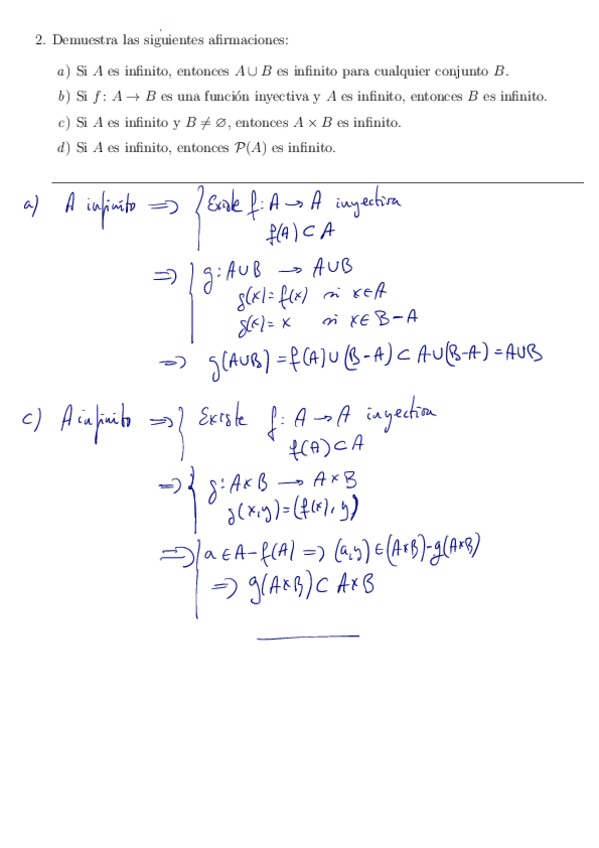 2. Demuestra las siguientes afirmaciones:
a) Si A es infinito, entonces A ∪ B es infinito para cualquier conjunto B.
b) Si f : A → B es una función inyectiva y A es infinito, entonces B es infinito.
c) Si A es infinito y B ≠ ∅, entonces A × B es infinito.
d) Si A es infinito, entonces P(A) es infinito.
a) A infinito ⇒ { Existe f: A → A inyectiva
f(A) ⊂ A
⇒ { g: A∪B → A∪B
g(x) = f(x) si x∈A
g(x) = x si x∈B-A
⇒ g(A∪B) = f(A)∪(B-A) ⊂ A∪(B-A) = A∪B
c) A infinito ⇒ { Existe f: A → A inyectiva
f(A) ⊂ A
⇒ { g: A×B → A×B
g(x,y) = (f(x), y)
⇒ { a∈A-f(A) ⇒ (a,y)∈(A×B)-g(A×B)
⇒ g(A×B) ⊂ A×B